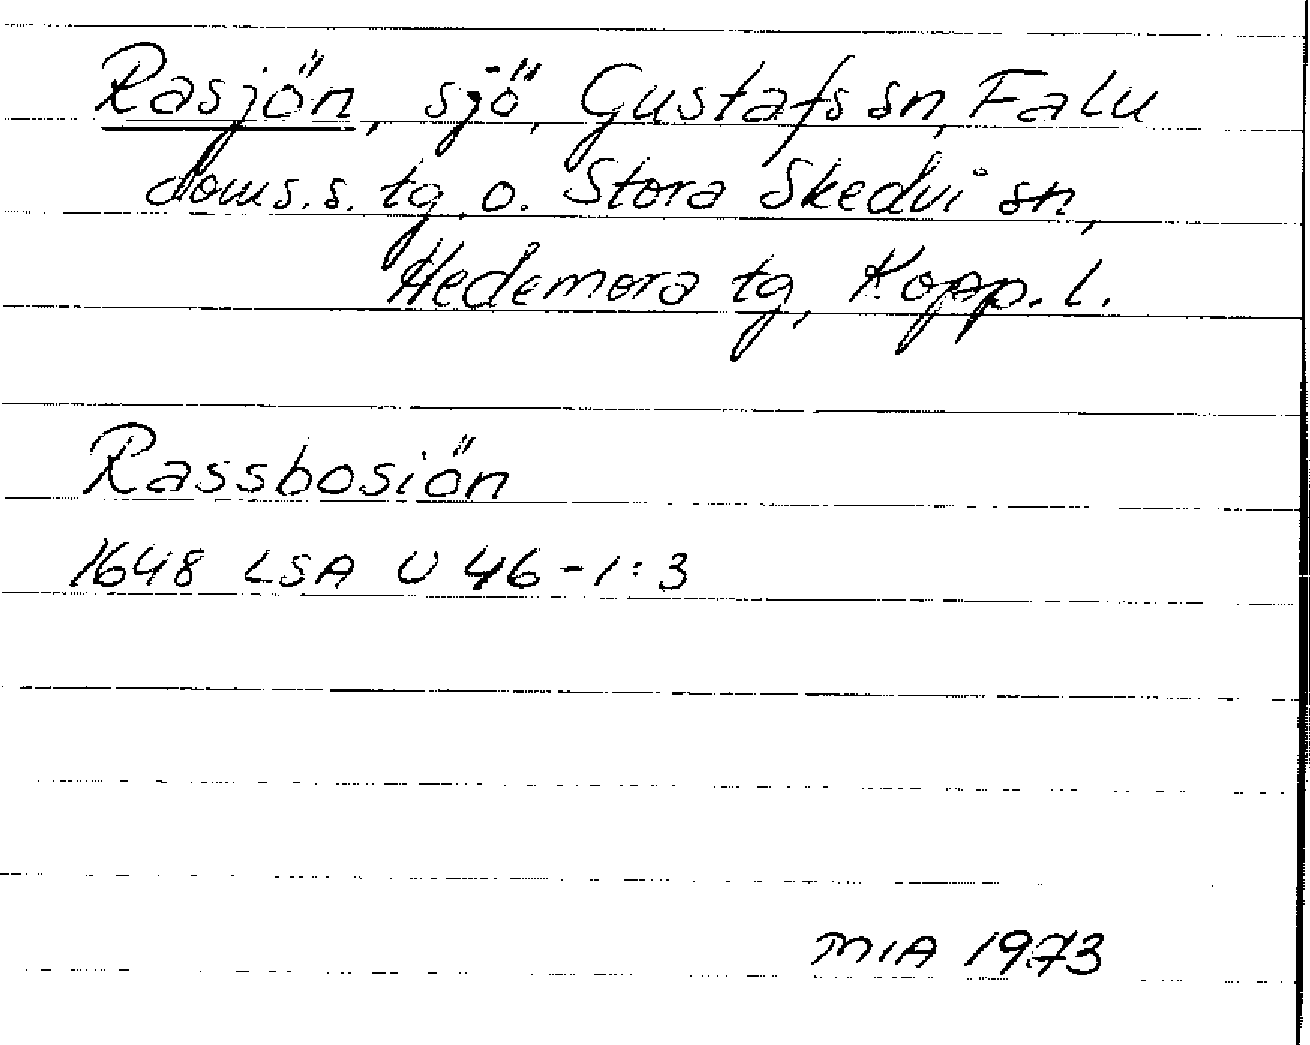 Rasjön, sjö, Gustafs sn, Falu
doms.s. tg o. Stora Skedvi sn,
Hedemora tg, Kopp. l.
Rassbosiön
1648 LSA U 46-1:3
MIA 1973